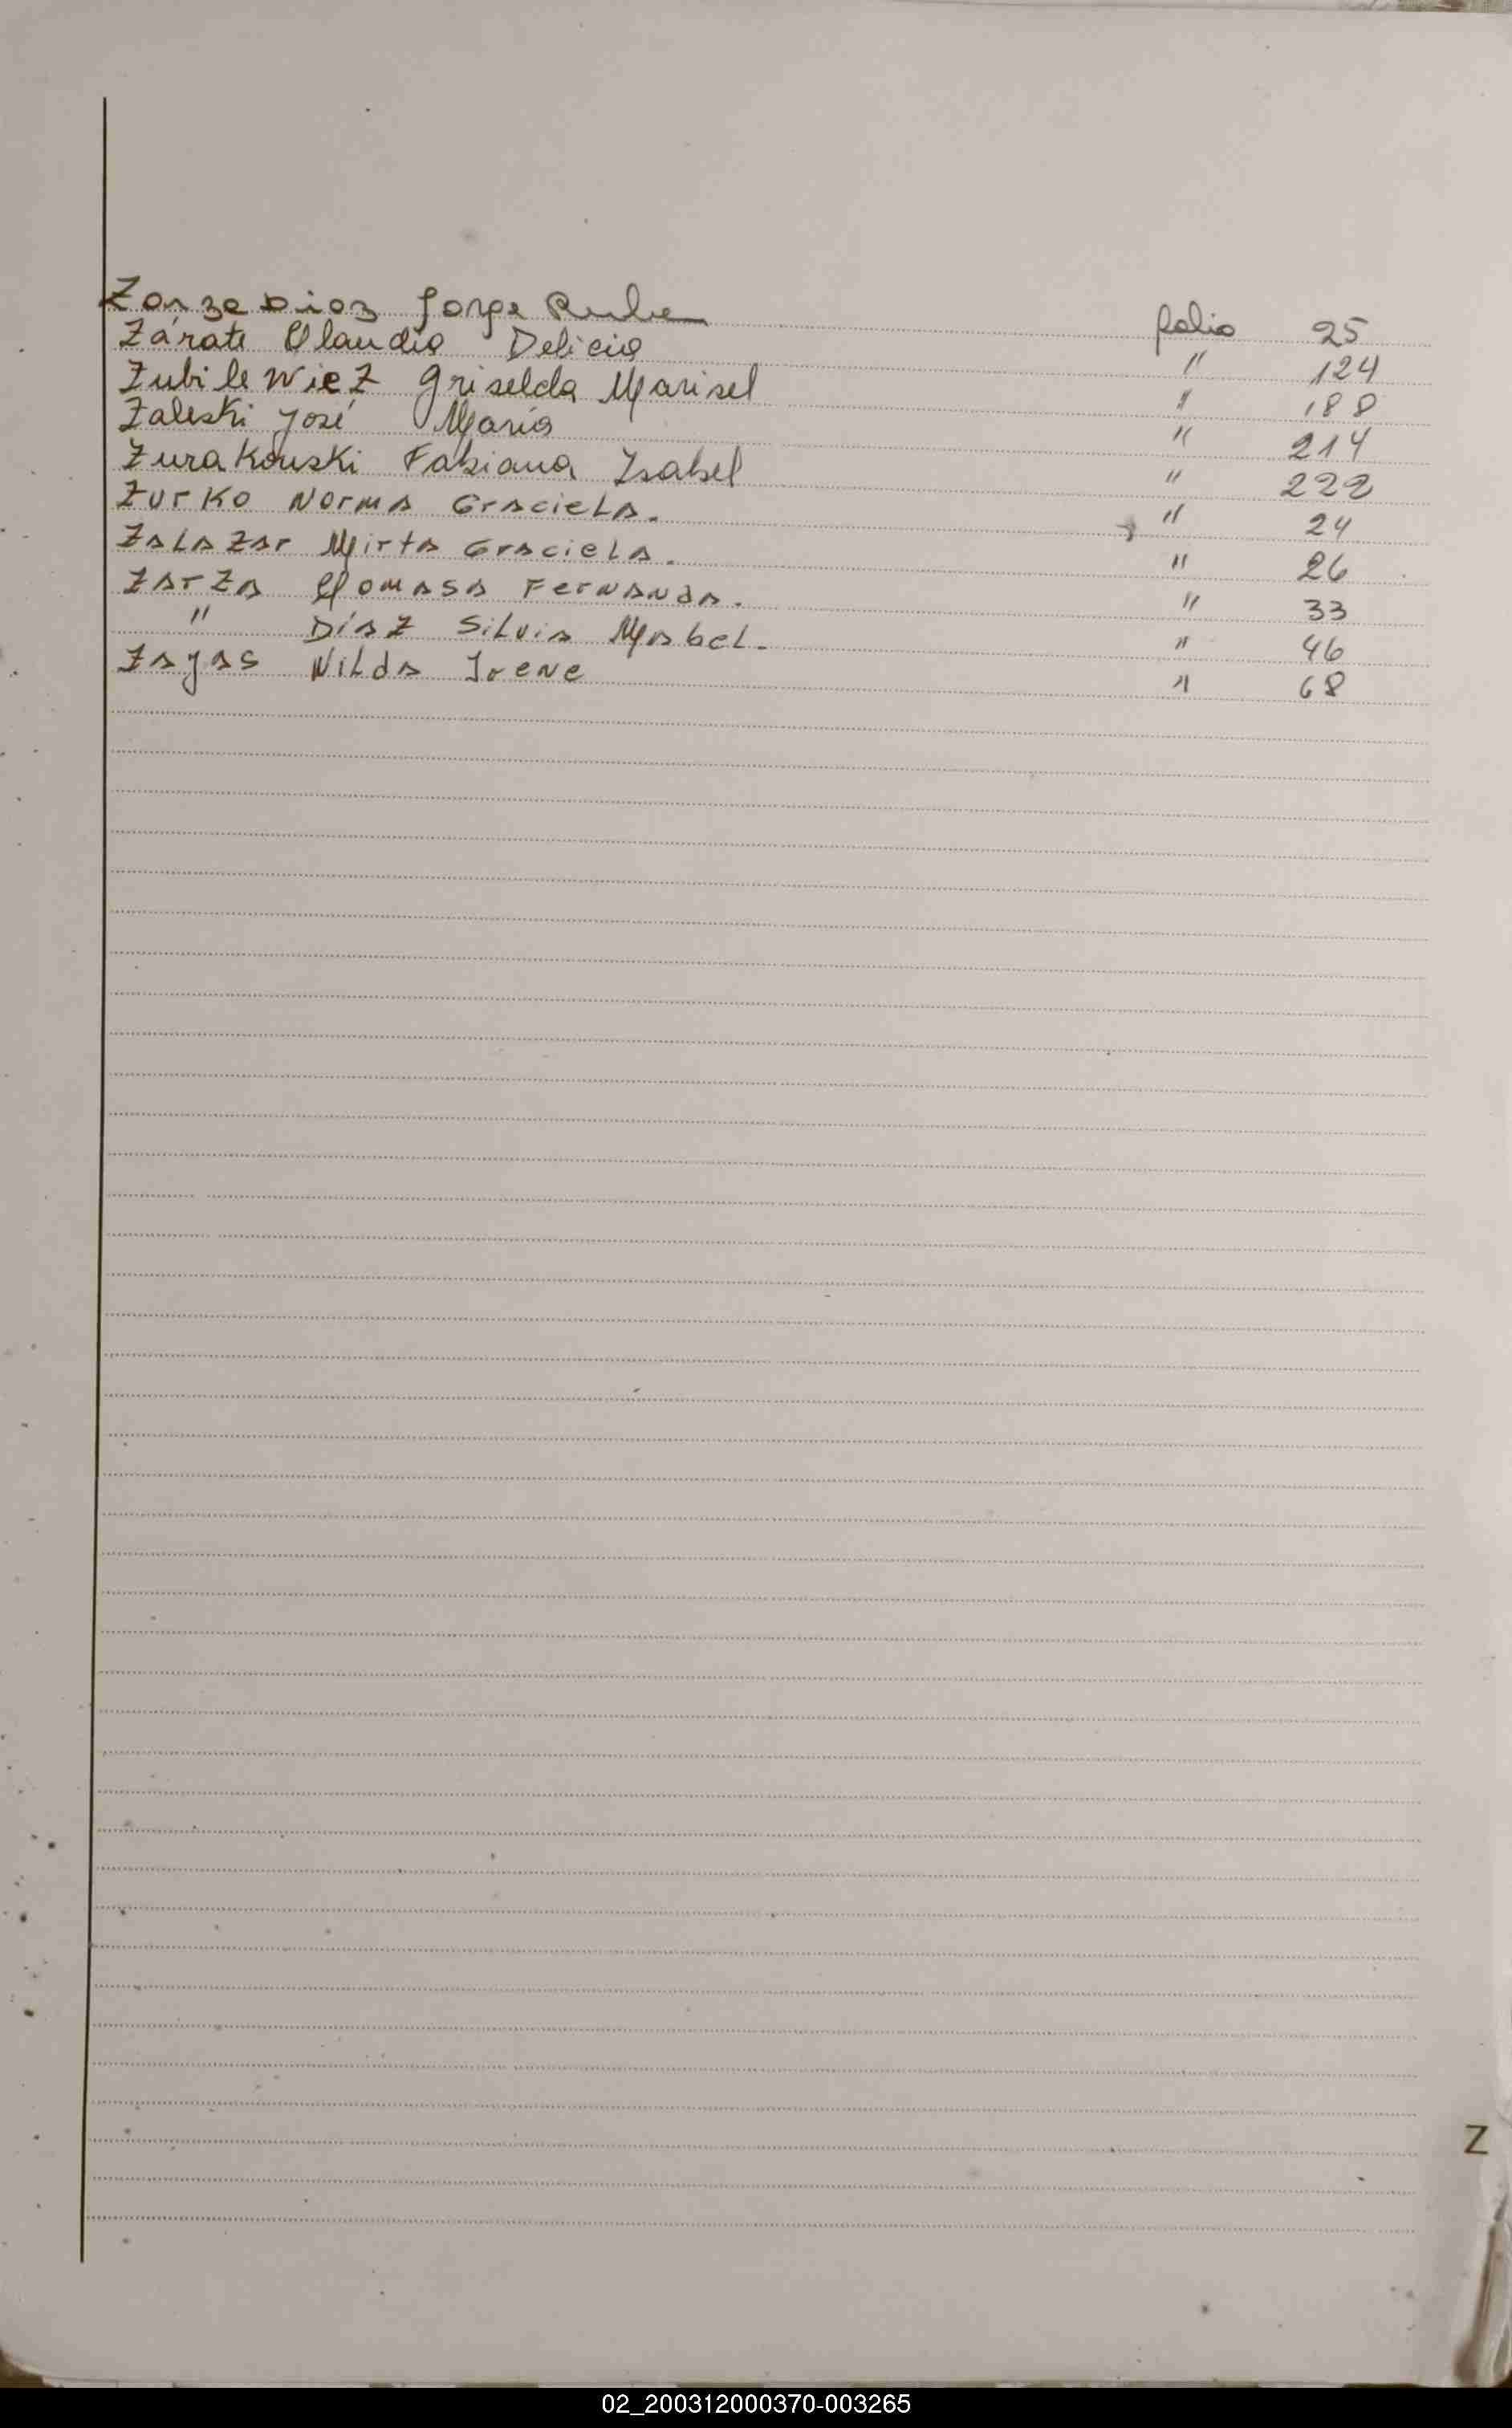 Zarze Dioz Jorge Rube folio 25
Zárate Claudio Delicio " 124
Zubilewiez Griselda Marisel " 188
Zaleski José María " 214
Zurakouski Fabiana Isabel " 222
Zurko Norma Graciela. " 24
Zalazar Mirta Graciela. " 26
Zarza Tomasa Fernanda. " 33
" Díaz Silvia Mabel. " 46
Zayas Nilda Irene " 68
Z
02_200312000370-003265